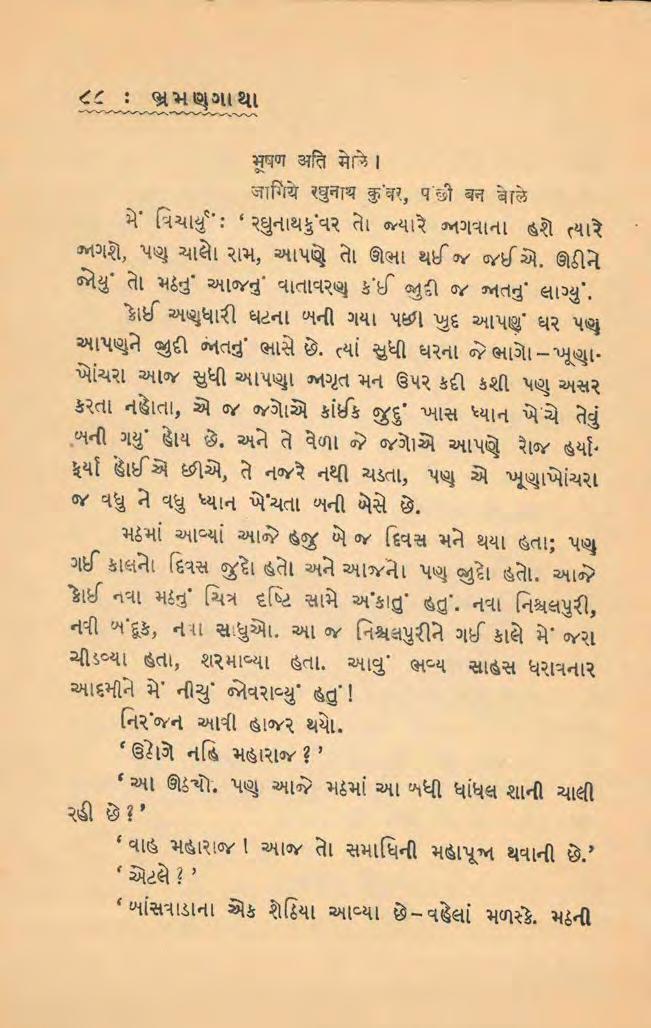 ૮૮ : ભ્રમણગાથા
भूषण अति मोले ।
जागिये रघुनाथ कुंवर, पंछी बन बोले
મેં વિચાર્યું : ‘ રઘુનાથકુંવર તો જ્યારે જાગવાના હશે ત્યારે
જાગશે, પણ ચાલો રામ, આપણે તો ઊભા થઈ જ જઈએ. ઊઠીને
જોયું તો મઠનું આજનું વાતાવરણ કંઈ જુદી જ જાતનું લાગ્યું.
કોઈ અણધારી ઘટના બની ગયા પછી ખુદ આપણું ઘર પણ
આપણુને જુદી જાતનું ભાસે છે. ત્યાં સુધી ઘરના જે ભાગો – ખૂણા-
ખોંચરા આજ સુધી આપણા જાગૃત મન ઉપર કદી કશી પણ અસર
કરતા નહોતા, એ જ જગોએ કાંઈક જુદું ખાસ ધ્યાન ખેંચે તેવું
બની ગયું હોય છે. અને તે વેળા જે જગોએ આપણે રોજ હર્યા-
ફર્યા હોઈએ છીએ, તે નજરે નથી ચડતા, પણ એ ખૂણાખોંચરા
જ વધુ ને વધુ ધ્યાન ખેંચતા બની બેસે છે.
મઠમાં આવ્યાં આજે હજુ બે જ દિવસ મને થયા હતા; પણ
ગઈ કાલનો દિવસ જુદો હતો અને આજનો પણ જુદો હતો. આજે
કોઈ નવા મઠનું ચિત્ર દૃષ્ટિ સામે અંકાતું હતું. નવા નિશ્ચલપુરી,
નવી બંદૂક, નવા સાધુઓ. આ જ નિશ્ચલપુરીને ગઈ કાલે મેં જરા
ચીડવ્યા હતા, શરમાવ્યા હતા. આવું ભવ્ય સાહસ ધરાવનાર
આદમીને મેં નીચું જોવરાવ્યું હતું !
નિરંજન આવી હાજર થયો.
‘ ઉઠોગે નહિ મહારાજ ? ’
‘ આ ઊઠ્યો. પણ આજે મઠમાં આ બધી ધાંધલ શાની ચાલી
રહી છે ? ’
‘ વાહ મહારાજ ! આજ તો સમાધિની મહાપૂજા થવાની છે.’
‘ એટલે ? ’
‘ બાંસવાડાના એક શેઠિયા આવ્યા છે – વહેલાં મળસ્કે. મઠની